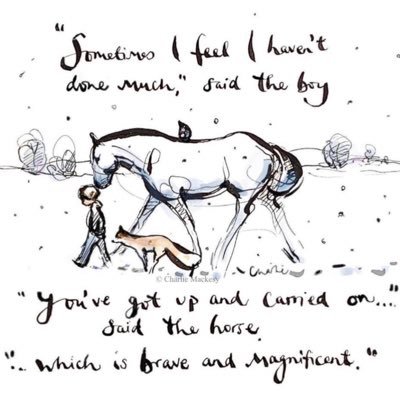 "Sometimes I feel I haven't
done much," said the boy
© Charlie Mackesy
"You've got up and carried on..."
said the horse.
".. which is brave and magnificent."